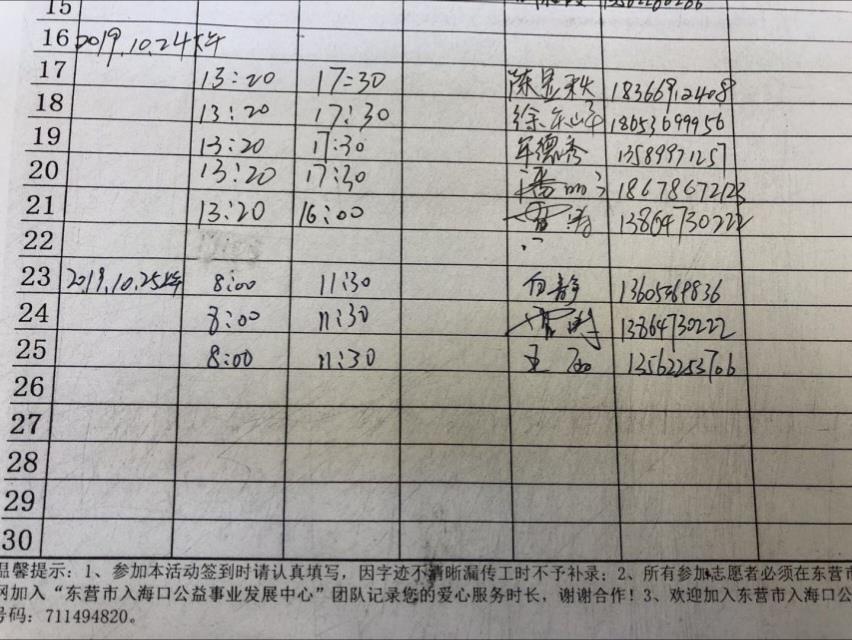 15
16 2019.10.24下午
17 13:20 17:30 陈显秋 18366912408
18 13:20 17:30 徐 18653699956
19 13:20 17:30 德秀 13589971257
20 13:20 17:30 潘 18678672123
21 13:20 16:00 涛 13864730222
22
23 2019.10.25上午 8:00 11:30 白静 13605369836
24 8:00 11:30 13864730222
25 8:00 11:30 王 13562253706
26
27
28
29
30
温馨提示：1、参加本活动签到时请认真填写，因字迹不清晰漏传工时不予补录；2、所有参加志愿者必须在东营市
网加入“东营市入海口公益事业发展中心”团队记录您的爱心服务时长，谢谢合作！3、欢迎加入东营市入海口公
号码：711494820。